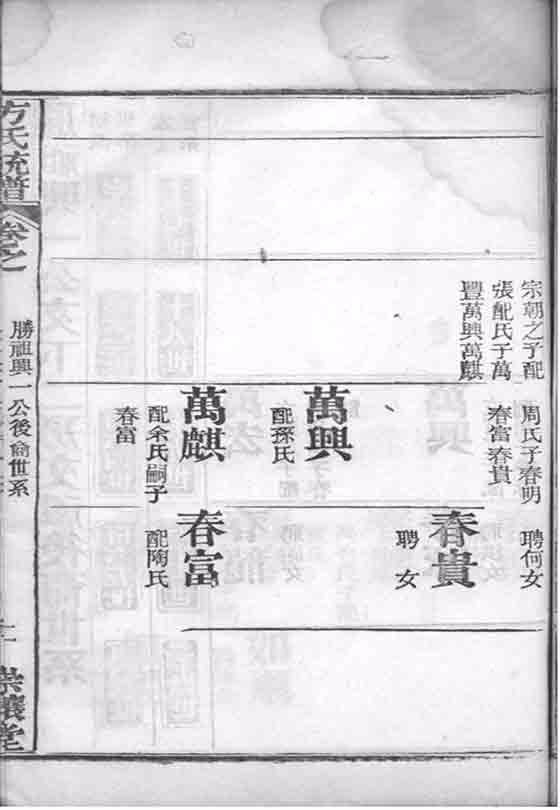 宗朝之子配
張配氏子萬
豐萬興萬麒
周氏子春明
春富春貴
萬興
配孫氏
萬麒
配余氏嗣子
春富
聘何女
春貴
聘 女
春富
配陶氏
方氏統譜
卷之
勝祖興一公後裔世系
崇讓堂